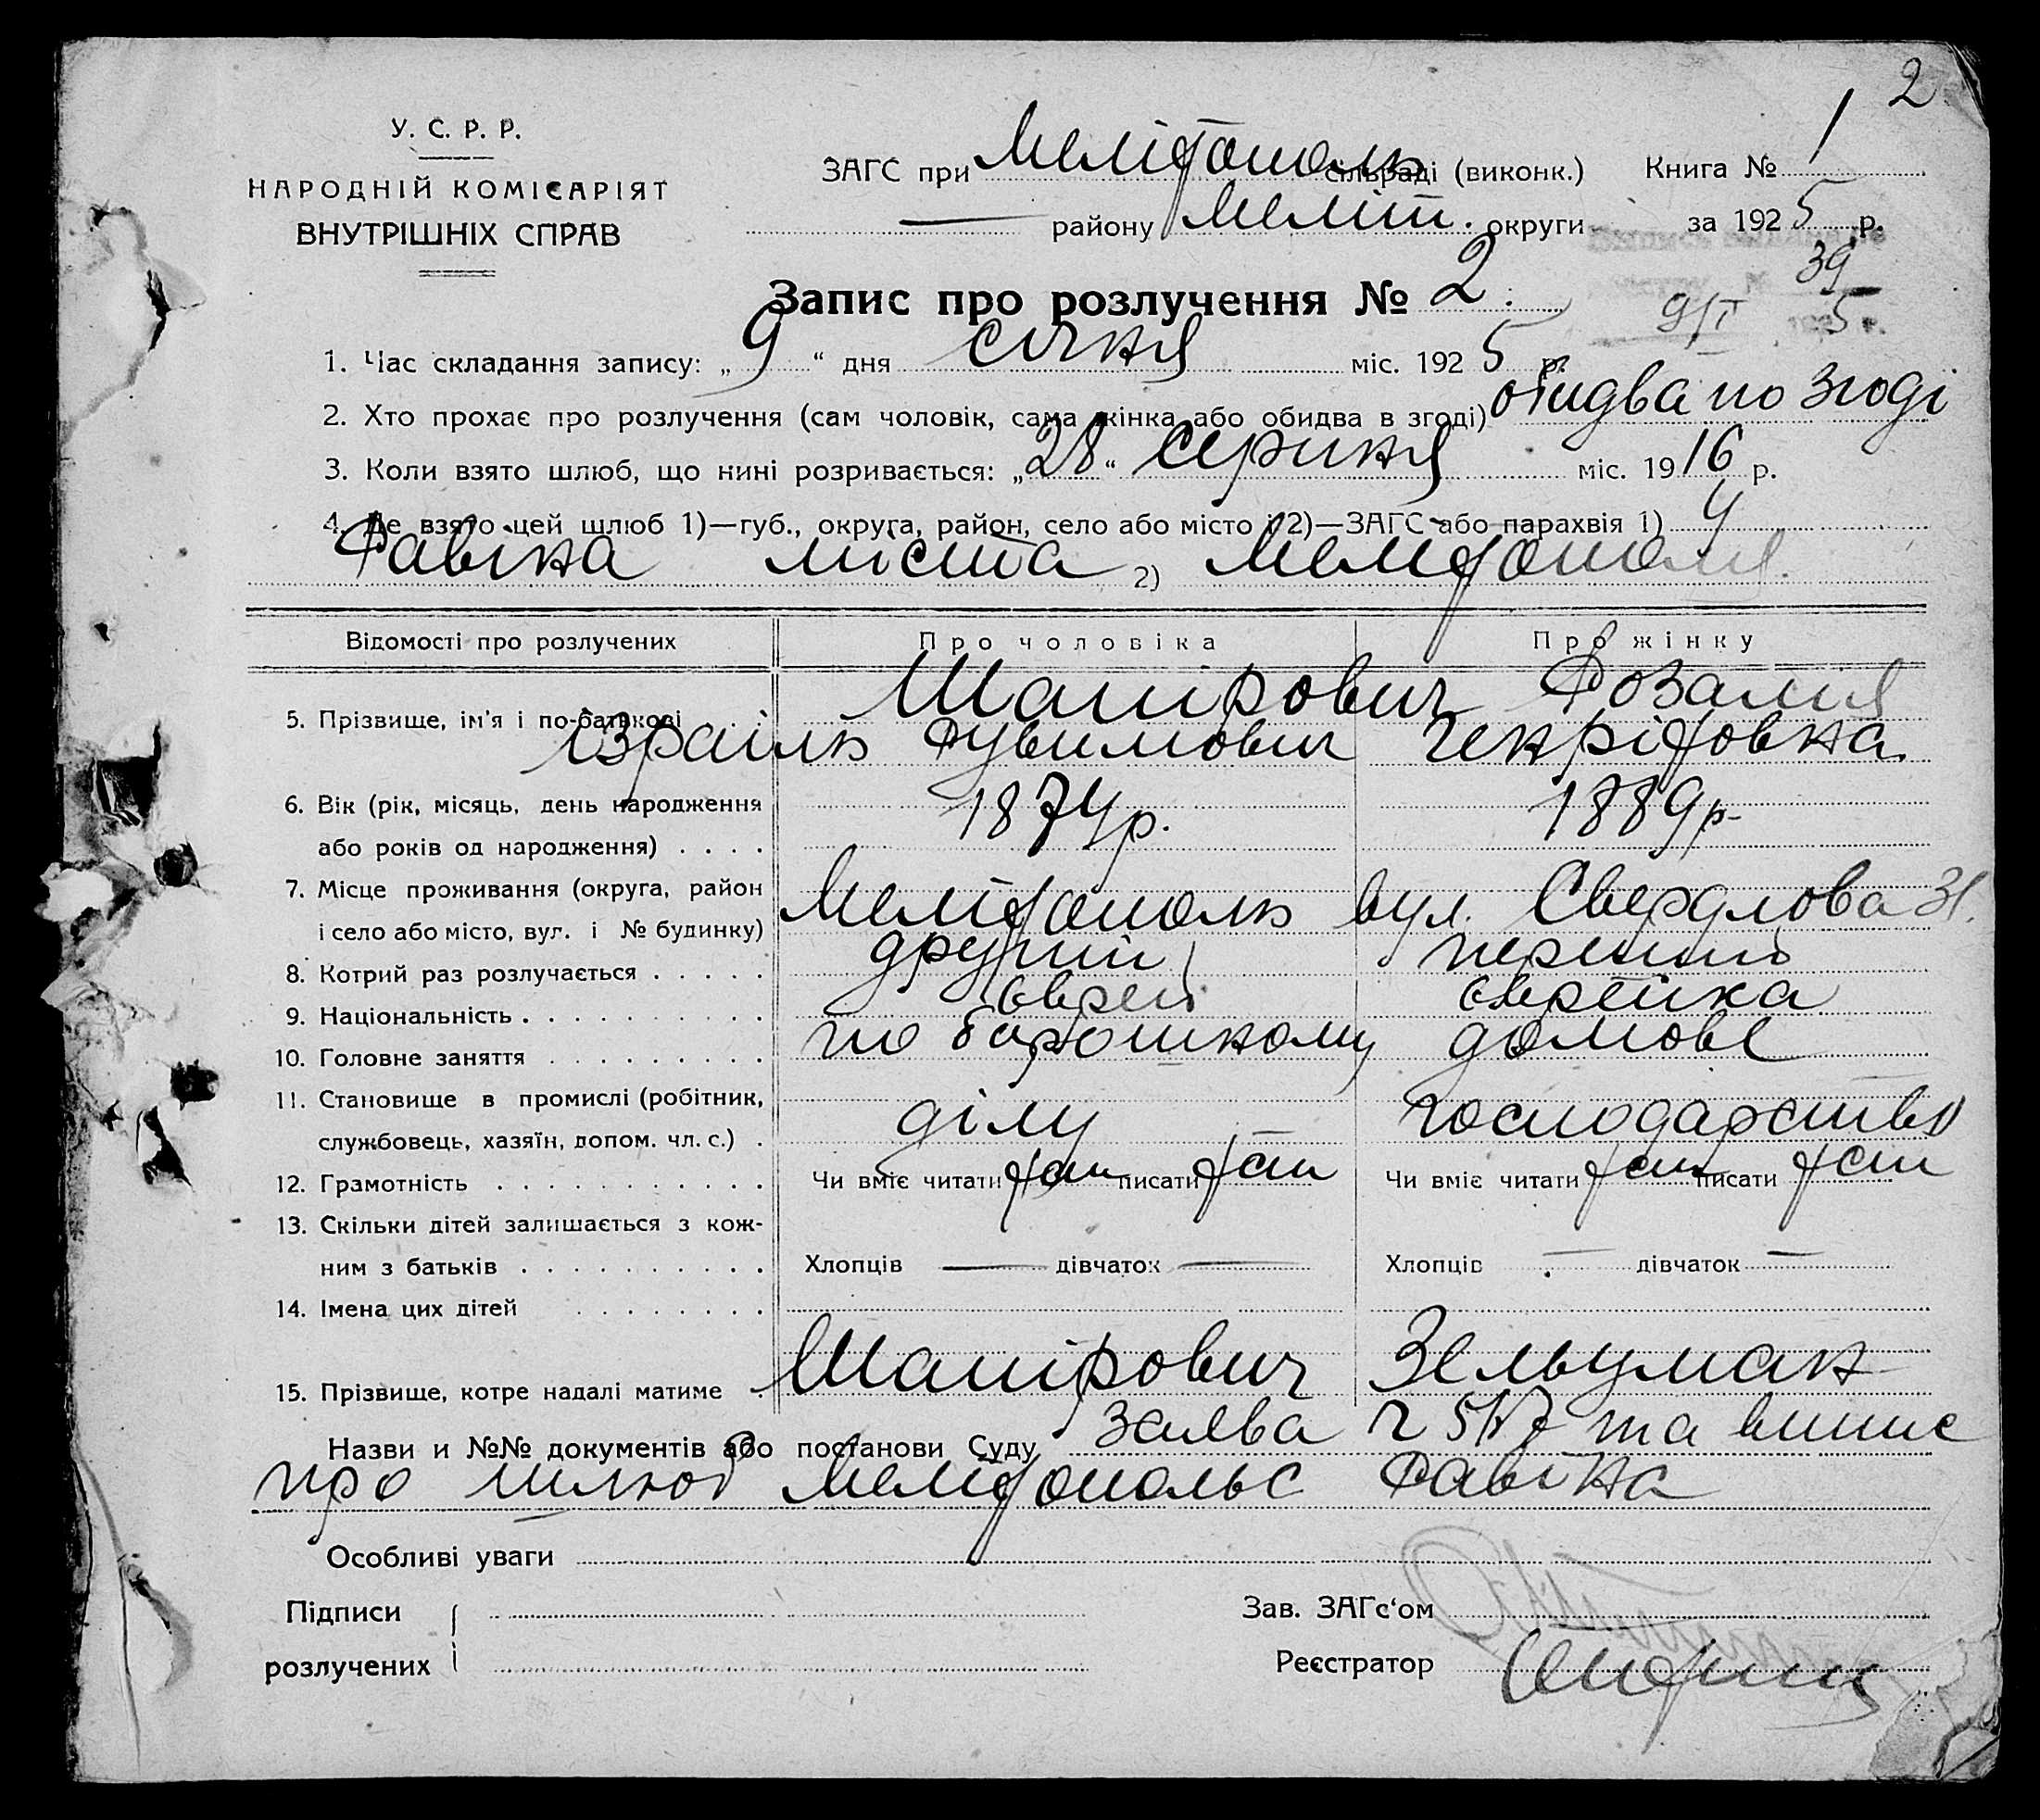 2
У. С. Р. Р.
НАРОДНІЙ КОМІСАРІЯТ
ВНУТРІШНІХ СПРАВ
ЗАГС при Мелітополь сільраді (виконк.) Книга № 1
— району Меліт. округи за 1925 р.
39
9/I 5
Запис про розлучення № 2.
1. Час складання запису: „9“ дня січня міс. 1925 р.
2. Хто прохає про розлучення (сам чоловік, сама жінка або обидва в згоді) обидва по згоді
3. Коли взято шлюб, що нині розривається: „28“ серпня міс. 1916 р.
4. Де взято цей шлюб 1)—губ., округа, район, село або місто і 2)—ЗАГС або парахвія 1) У
Равіна міста 2) Мелітополя.
Відомості про розлучених Про чоловіка Про жінку
5. Прізвище, ім'я і по-батькові Шапірович Розалія
Ізраіль Рувимович Генріховна
6. Вік (рік, місяць, день народження 1874 р. 1889 р.
або років од народження) . . . .
7. Місце проживання (округа, район Мелітополь вул. Свердлова 31.
і село або місто, вул. і № будинку)
8. Котрий раз розлучається . . . . . другий перший
9. Національність . . . . . . . . . . єврей єврейка
10. Головне заняття . . . . . . . . . по борошному домове
11. Становище в промислі (робітник, ділу господарство
службовець, хазяїн, допом. чл. с.) .
12. Грамотність . . . . . . . . . . . Чи вміє читати так писати так Чи вміє читати так писати так
13. Скільки дітей залишається з кож-
ним з батьків . . . . . . . . . . Хлопців — дівчаток — Хлопців — дівчаток —
14. Імена цих дітей . . . . . . . .
15. Прізвище, котре надалі матиме . Шапірович Зельцман
Назви и №№ документів або постанови Суду заява та випис
про шлюб Мелітопольс Равіна
Особливі уваги
Підписи Зав. ЗАГс‘ом
розлучених Реєстратор